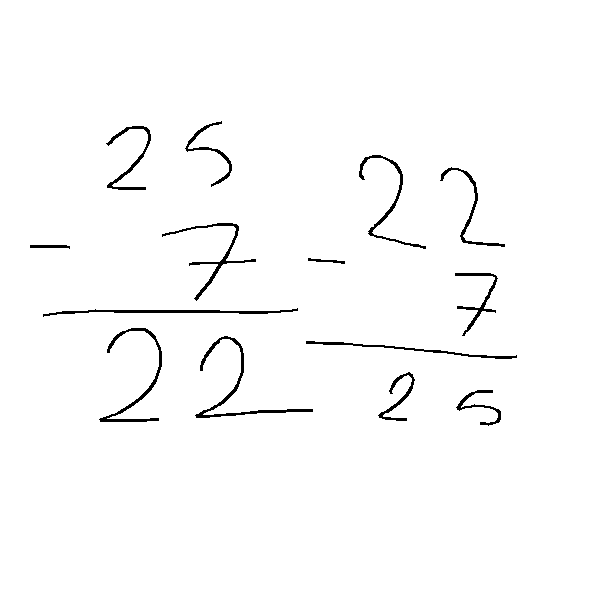 25
- 7
22
22
- 7
25